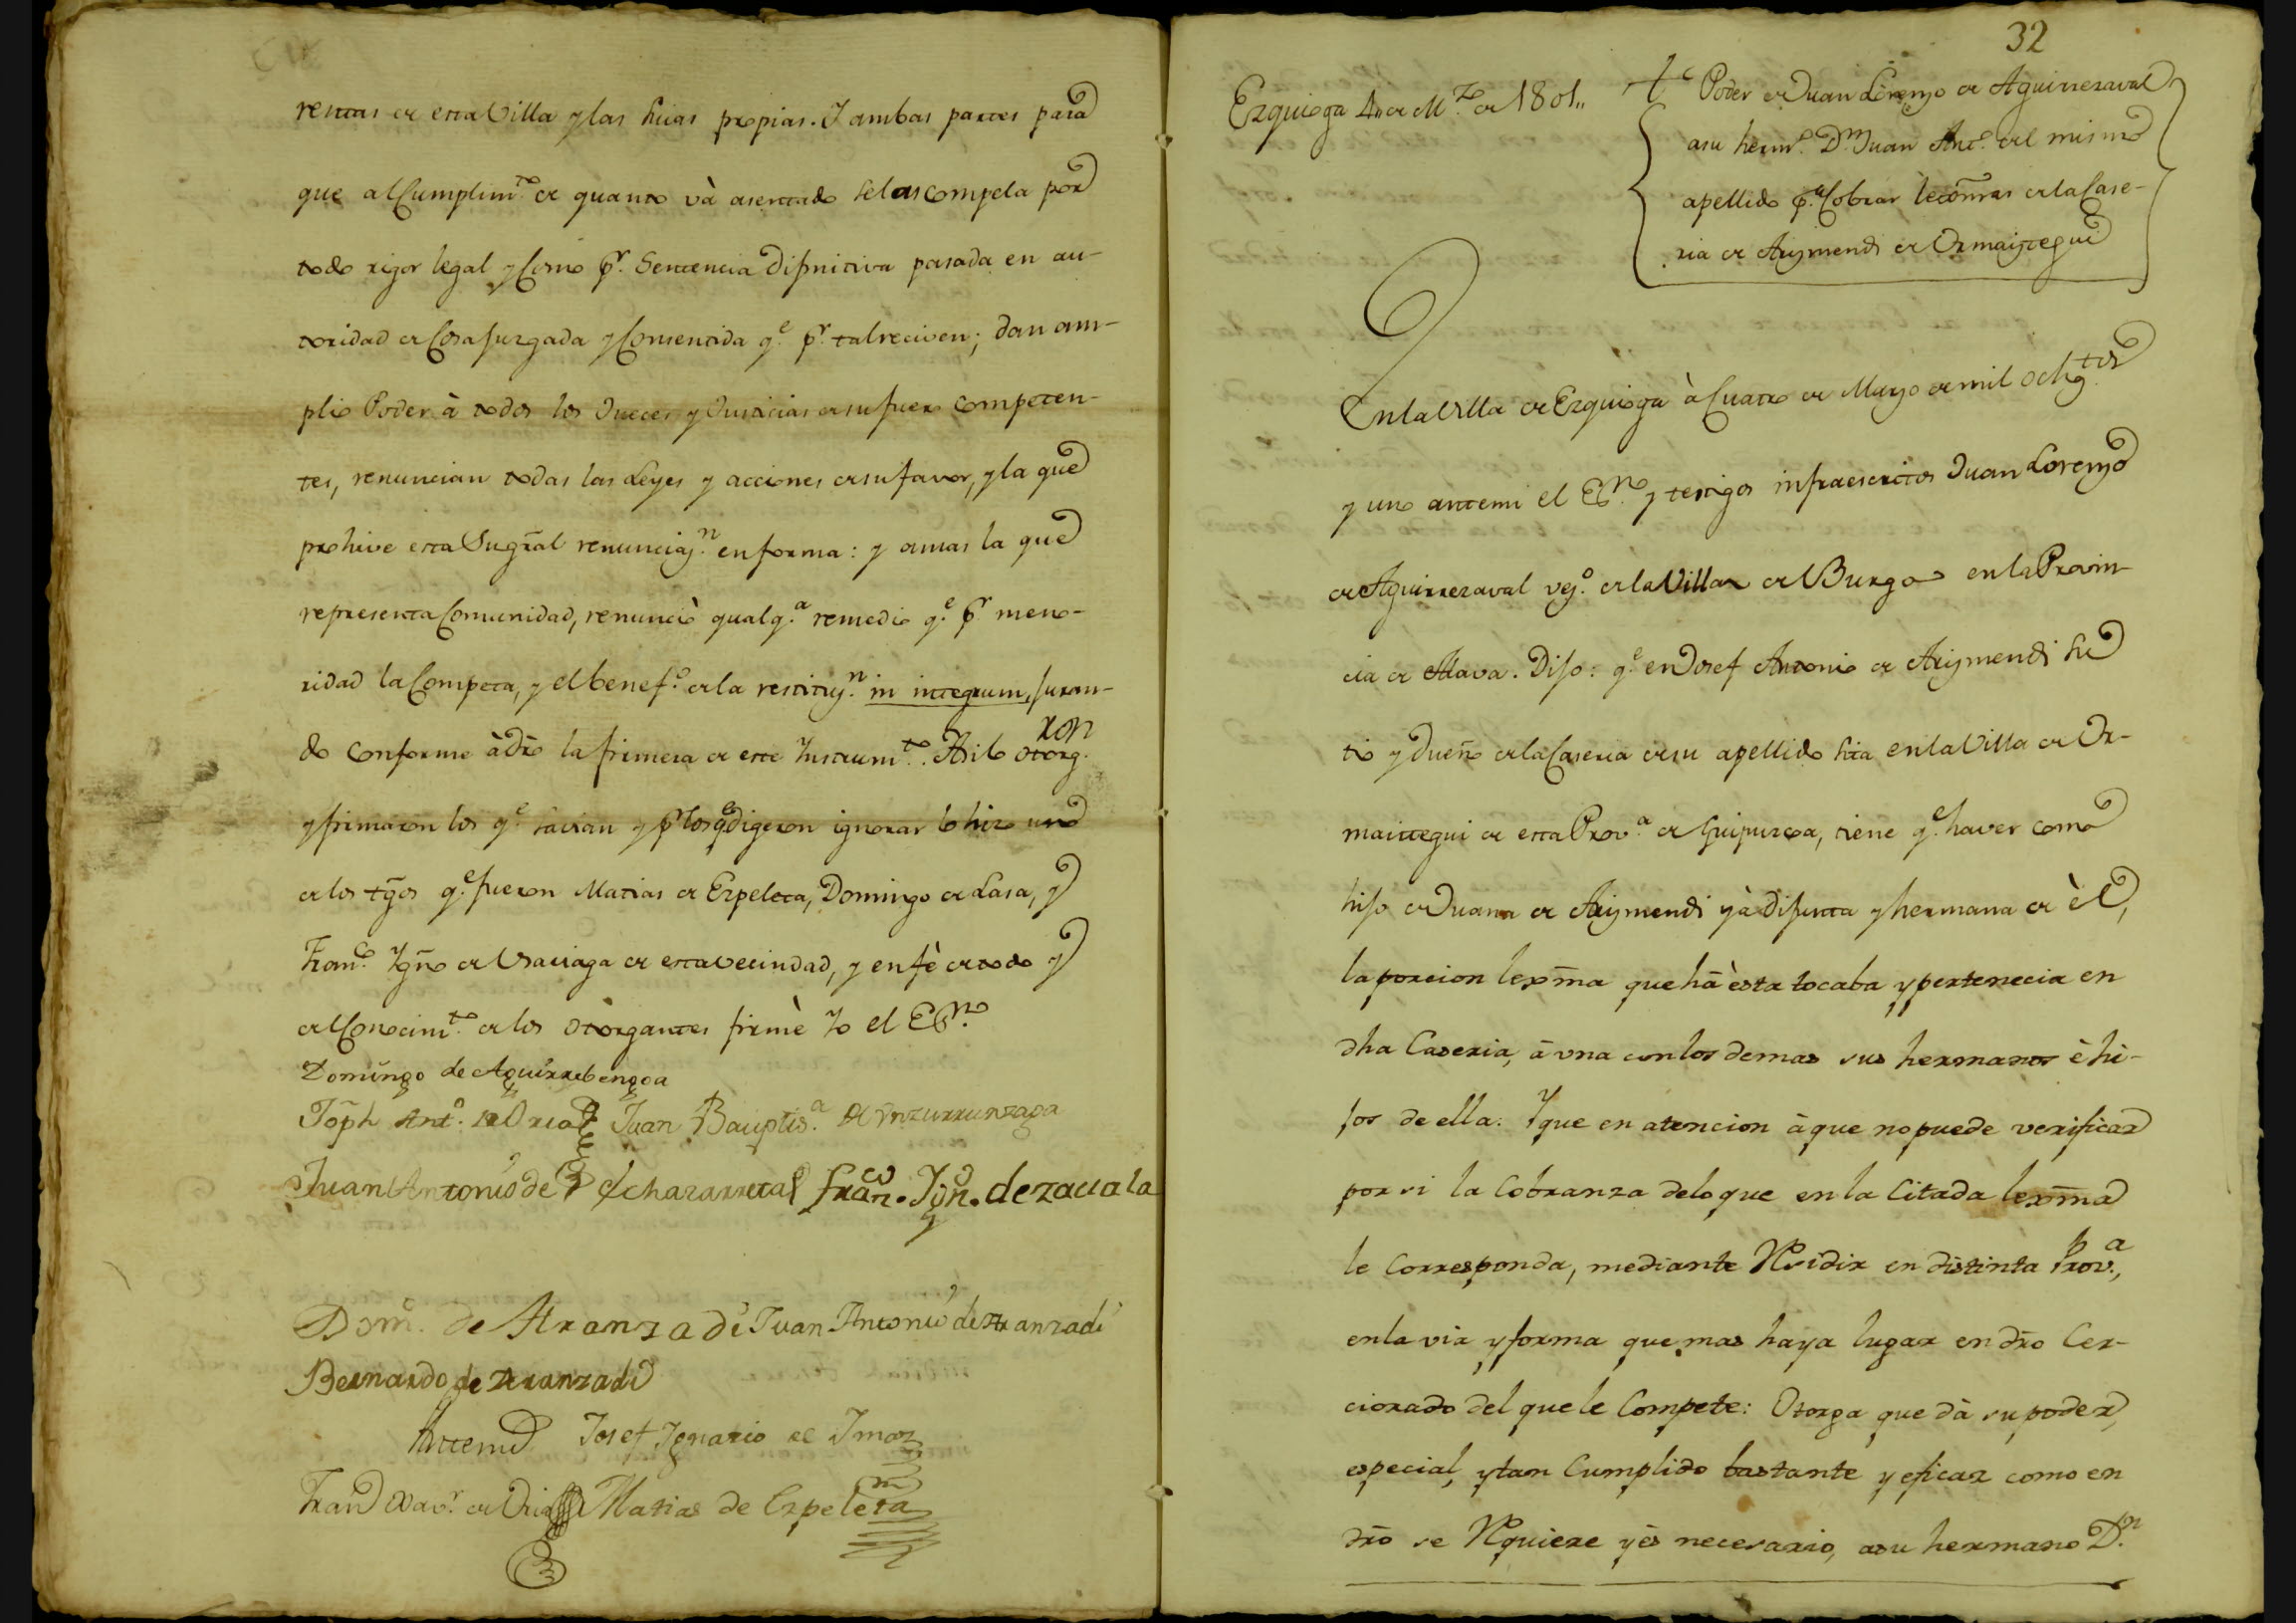 rentas de esta Villa y las suias propias. Y ambas partes para
que al Cumplim.to de quanto và asentado se las compela por
todo rigor legal y Como pr. Sentencia difinitiva pasada en au-
toridad de Cosa Juzgada y Consentida q.e pr. tal reciven; dan am-
plio Poder à todos los Jueces y Justicias de su fuero competen-
tes, renuncian todas las Leyes y acciones de su favor, y la que
prohive esta Su gral renunciaz.n en forma: y amas la que
representa Comunidad, renunciò qualq.a remedio q.e pr. meno-
ridad la Competa, y el benef.o de la restituz.n in integrum, Juran-
do conforme à dro la firmeza de este Instrum.to. Asi lo otorg.ron
y firmaron los q.e savian y pr los q.e digeron ignorar lo hizo uno
de los tgos q.e fueron Matias de Ezpeleta, Domingo de Lasa, y
Fran.co Ygn.o de Usaviaga de esta vecindad, y en fè de todo y
del Conocim.to de los otorgantes firmè Yo el Esn.o
Domingo de Aguirrebengoa
Joph Ant.o de Oria Juan Bauptis.a de Ynzurrunzaga
Juan Antonio de Echazarreta fran.co Ygn.o de zavala
Dom.o de Aranzadi Juan Antonio de Aranzadi
Bernardo de Aranzadi
Antemi Josef Ygnazio de Ymaz
Fran.co Xav.r de Oria Matias de Ezpeleta
32
Ezquioga 4 de M.zo de 1801,,
Poder de Juan Lorenzo de Aguirrezaval
a su herm.o D.n Juan Ant.o del mismo
apellido p.a Cobrar lexmas de la Case-
ria de Arizmendi de Ormaiztegui
En la Villa de Ezquioga à Cuatro de Marzo de mil ochg.tos
y uno ante mi el Esn.o y testigos infraescritos Juan Lorenzo
de Aguirrezaval vez.o de la Villa de Burgo en la Provin-
cia de Alava. Dijo: q.e en Josef Antonio de Arizmendi su
tio y dueño de la Caseria de su apellido sita en la Villa de Or-
maiztegui de esta Prov.a de Guipuzcoa, tiene q.e haver como
hijo de Juana de Arizmendi yà difunta y hermana de èl,
la porcion lexma que hà èsta tocaba y pertenecia en
dha Caseria, à una con los demas sus hermanos è hi-
jos de ella: Y que en atencion à que no puede verificar
por si la Cobranza de lo que en la Citada lexma
le Corresponda, mediante Residir en distinta Prov.a,
en la via y forma que mas haya lugar en dro Cer-
ciorado del que le Compete: Otorga que dà su poder
especial, y tan Cumplido bastante y eficaz como en
dro se Requiere y ès necesario, a su hermano D.n